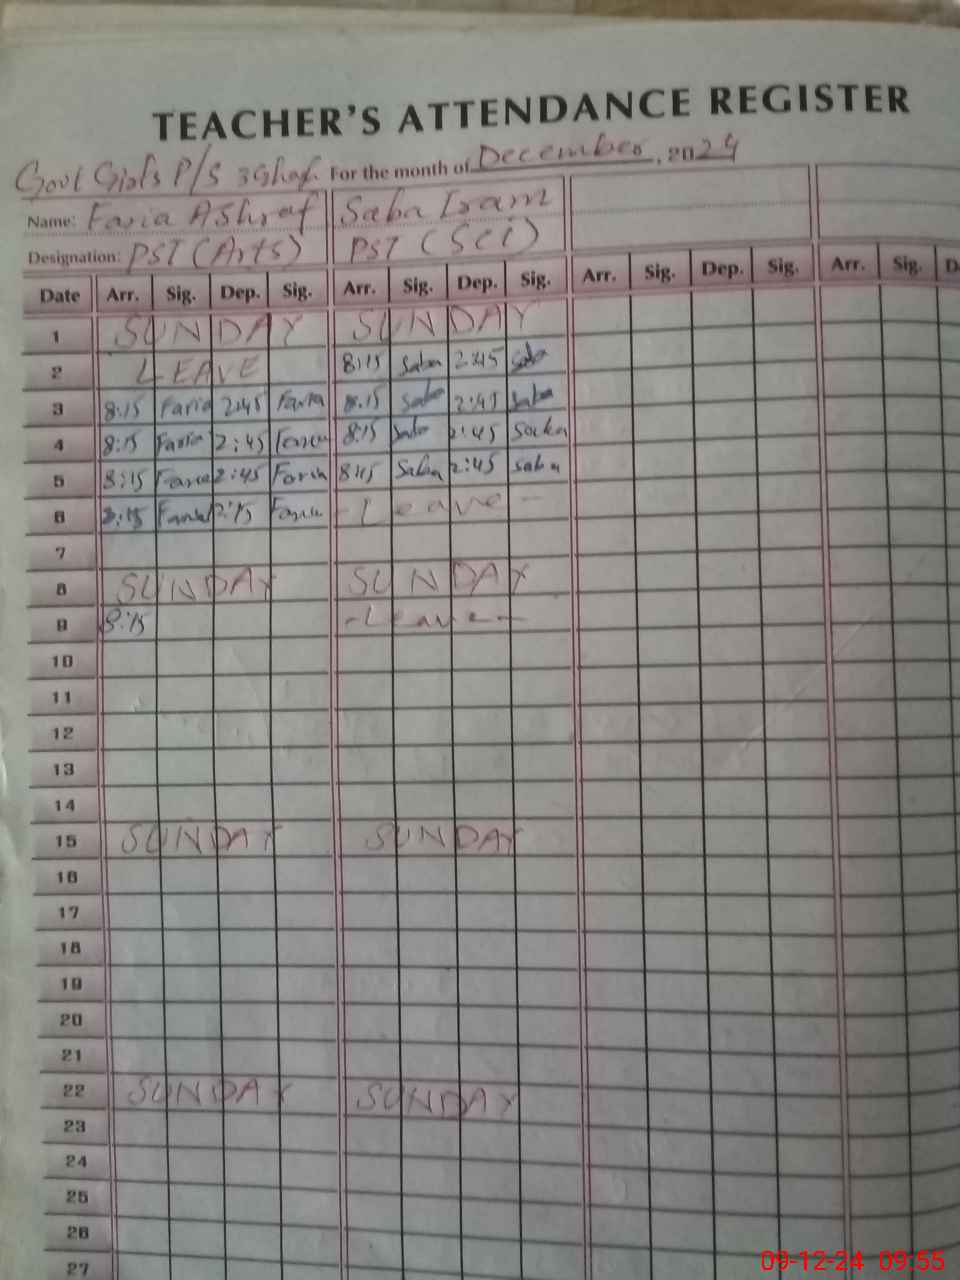 TEACHER'S ATTENDANCE REGISTER
Govt Girls P/S For the month of December, 2024
Name: Faria Ashraf Saba Iram
Designation: PST (Arts) PST (Sci)
Date Arr. Sig. Dep. Sig. Arr. Sig. Dep. Sig. Arr. Sig. Dep. Sig. Arr. Sig. D
1 SUNDAY SUNDAY
2 LEAVE 8:15 Saba 2:45 Saba
3 8:15 Faria 2:45 Faria 8:15 Saba 2:45 Saba
4 8:15 Faria 2:45 Faria 8:15 Saba 2:45 Saba
5 8:15 Faria 2:45 Faria 8:15 Saba 2:45 Saba
6 8:15 Faria Faria - Leave -
7
8 SUNDAY SUNDAY
9 8:15 - Leave -
10
11
12
13
14
15 SUNDAY SUNDAY
16
17
18
19
20
21
22 SUNDAY SUNDAY
23
24
25
26
27
09-12-24 09:55